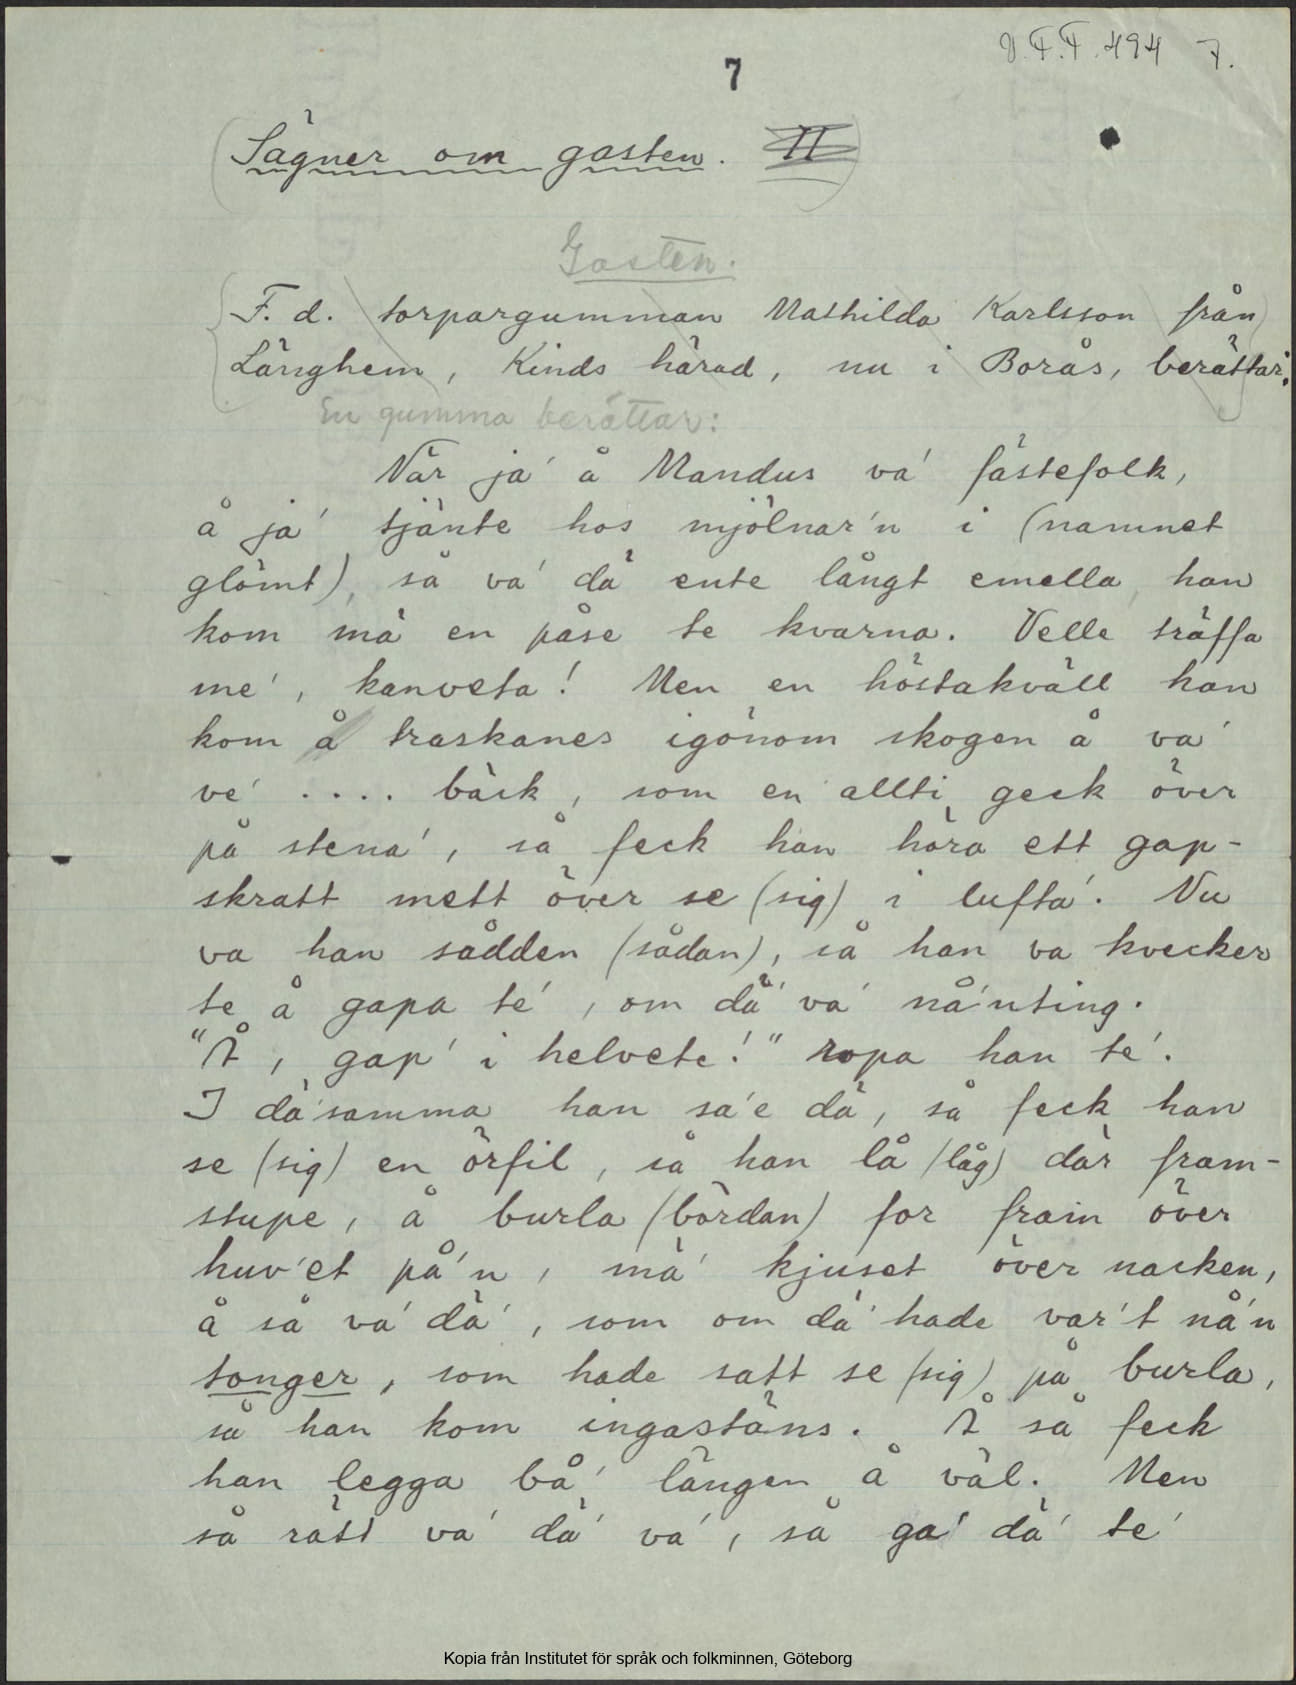 V.F.F. 494 7.
7
(Sägner om gasten. II)
Gasten.
F. d. torpargumman Mathilda Karlsson från
Länghem, Kinds härad, nu i Borås, berättar:
En gumma berättar:
När ja' å Mandus va' fästefolk,
å ja' tjänte hos mjölnar'n i (namnet
glömt), så va' dä ente långt emella, han
kom mä en påse te kvarna. Velle träffa
me', kanveta! Men en höstakväll han
kom å traskanes igönom skogen å va'
ve' .... bäck, som en allti geck över
på stena', så feck han höra ett gap-
skratt mett över se (sig) i lufta'. Nu
va han sådden (sådan), så han va kvecker
te å gapa te', om dä' va' nå'nting.
"Å, gap' i helvete!" ropa han te'.
I dä'samma han sa'e dä, så feck han
se (sig) en örfil, så han lå (låg) där fram-
stupe, å burla (bördan) for fram över
huv'et på'n, mä' kjuset över nacken,
å så va' dä', som om dä' hade var't nå'n
tonger, som hade satt se (sig) på burla,
så han kom ingastäns. Å så feck
han legga bå' längen å väl. Men
så rätt va' dä' va', så ga' dä' te'
Kopia från Institutet för språk och folkminnen, Göteborg